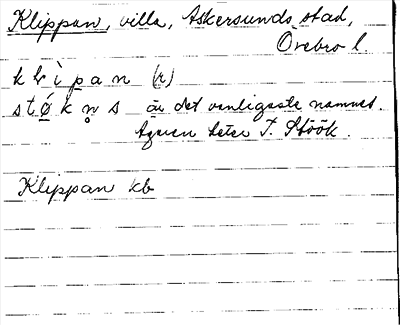 Klippan, villa, Askersunds stad,
Örebro l.
klìpan (r)
støkns är det vanligaste namnet.
Ägaren heter T. Stöök.
Klippan kb